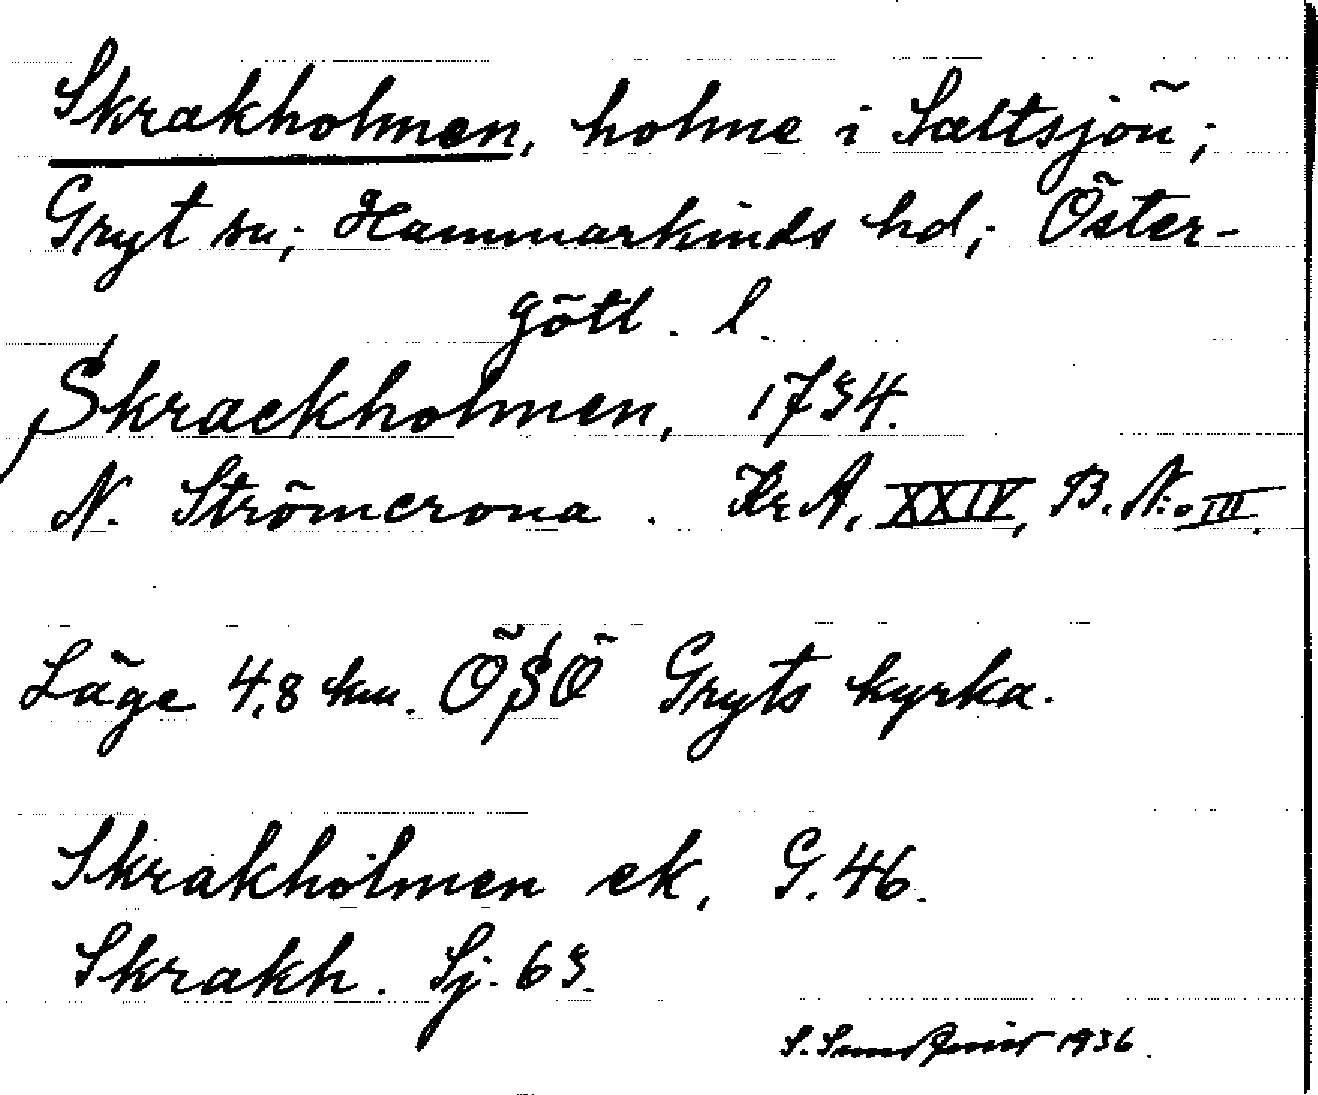 Skrakholmen, holme i Saltsjön;
Gryt sn; Hammarkinds hd; Öster-
götl. l.
Skrackholmen, 1734.
N. Strömcrona. Kr A, XXIV, B. N:o III.
Läge 4,8 km. ÖSÖ Gryts kyrka.
Skrakholmen ek, G. 46.
Skrakh. Sj. 63.
S. 1936.